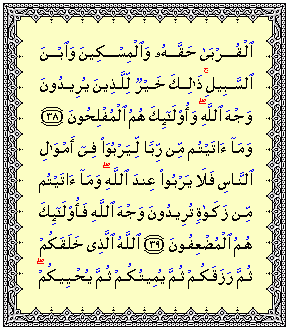 ٱلْقُرْبَىٰ حَقَّهُۥ وَٱلْمِسْكِينَ وَٱبْنَ
ٱلسَّبِيلِ ۚ ذَٰلِكَ خَيْرٌ لِّلَّذِينَ يُرِيدُونَ
وَجْهَ ٱللَّهِ ۖ وَأُو۟لَٰٓئِكَ هُمُ ٱلْمُفْلِحُونَ ﴿٣٨﴾
وَمَآ ءَاتَيْتُم مِّن رِّبًا لِّيَرْبُوَا۟ فِىٓ أَمْوَٰلِ
ٱلنَّاسِ فَلَا يَرْبُوا۟ عِندَ ٱللَّهِ ۖ وَمَآ ءَاتَيْتُم
مِّن زَكَوٰةٍ تُرِيدُونَ وَجْهَ ٱللَّهِ فَأُو۟لَٰٓئِكَ
هُمُ ٱلْمُضْعِفُونَ ﴿٣٩﴾ ٱللَّهُ ٱلَّذِى خَلَقَكُمْ
ثُمَّ رَزَقَكُمْ ثُمَّ يُمِيتُكُمْ ثُمَّ يُحْيِيكُمْ ۖ